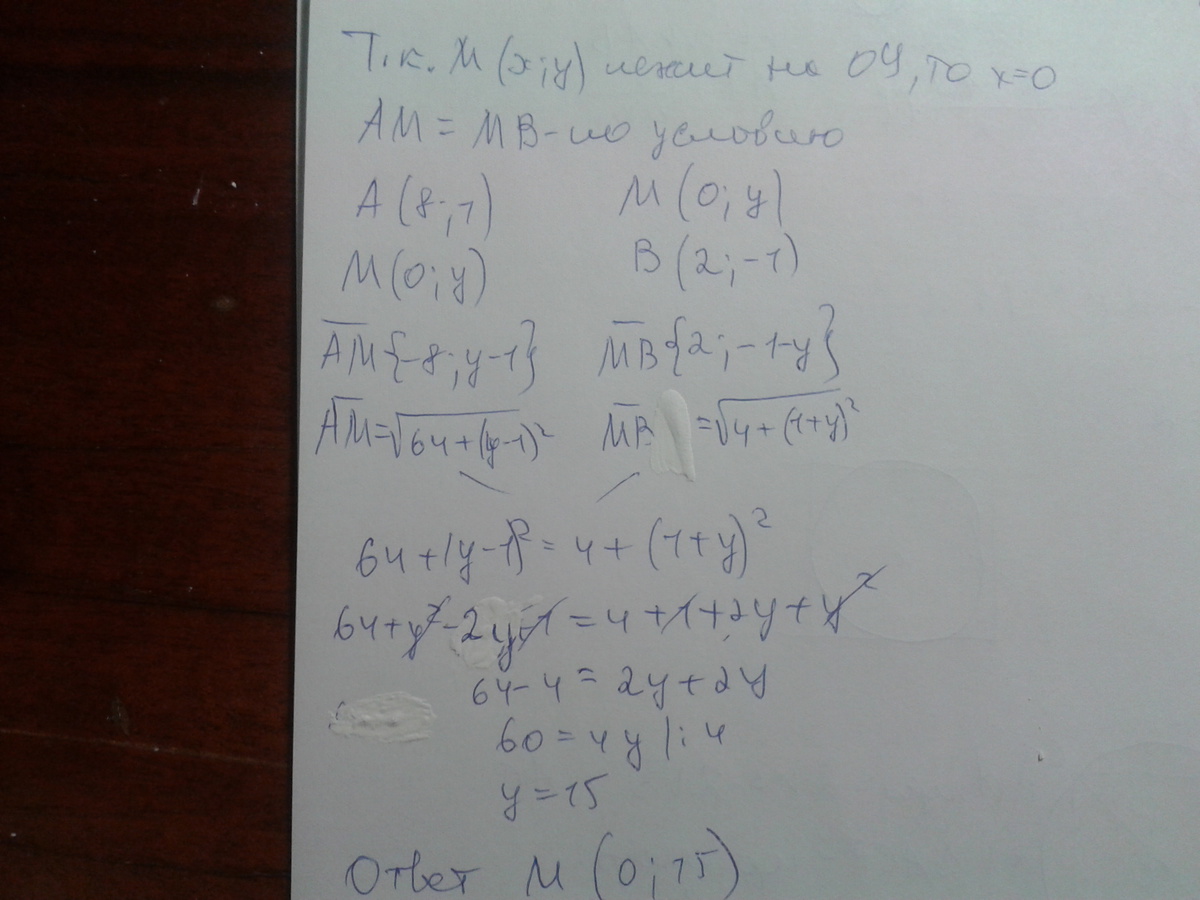 Т.к. М (x;y) лежит на OY, то x=0
AM = MB - по условию
A (8; 1) M (0; y)
M (0; y) B (2; -1)
A͞M͞ {-8; y-1} M͞B͞ {2; -1-y}
A͞M͞ = √64+(y-1)² M͞B͞ = √4+(1+y)²
64+(y-1)² = 4+(1+y)²
64+y²-2y+1 = 4+1+2y+y²
64-4 = 2y+2y
60 = 4y |:4
y = 15
Ответ M (0; 15)